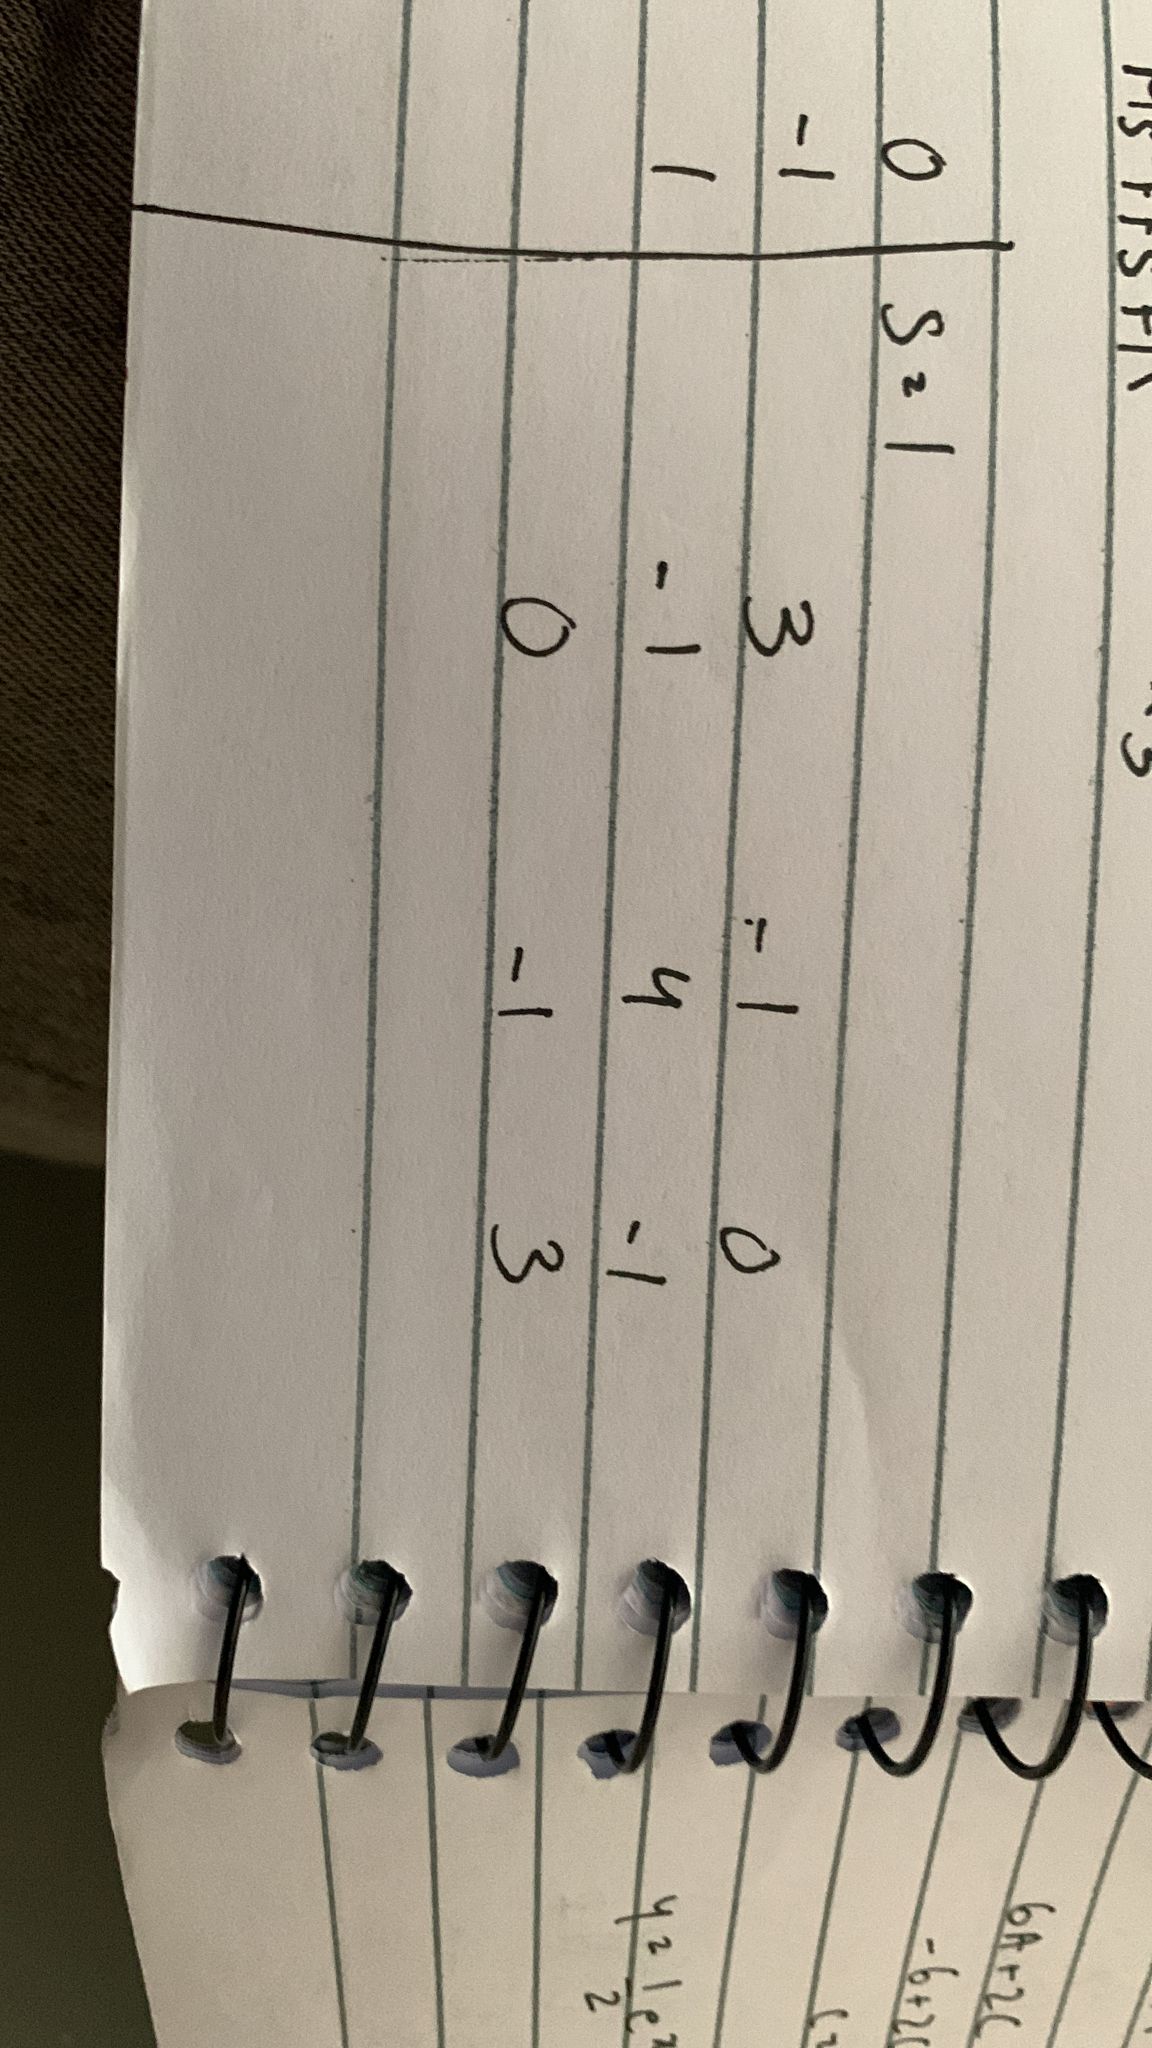 0 S = 1
-1 3 -1 0
1 -1 4 -1
0 -1 3
6A+2C
-6+2C
y = 1
2